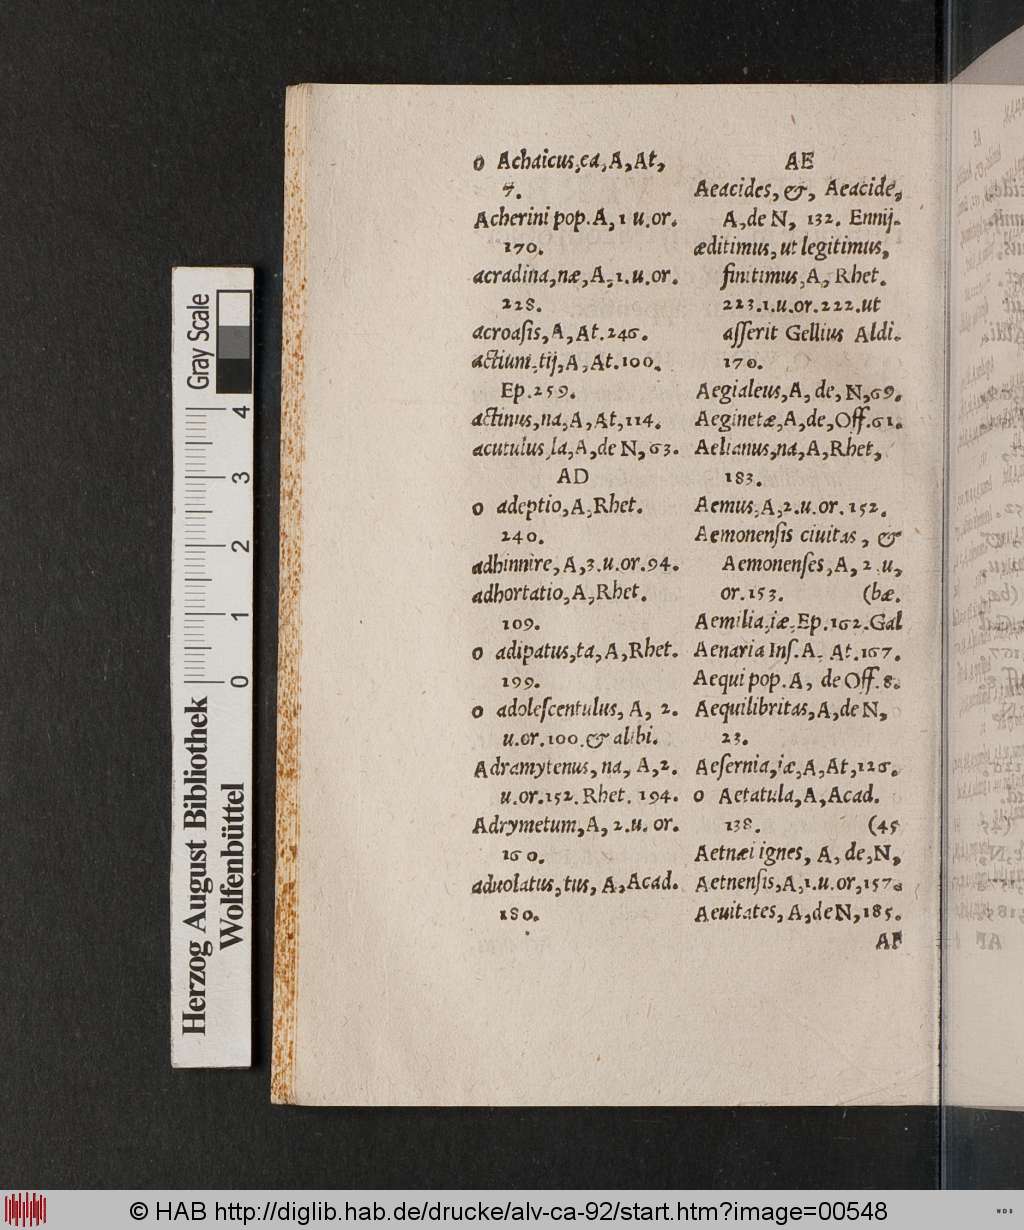 o Achaicus,ca,A,At,
7.
Acherini pop.A,1 u.or.
170.
acradina,næ,A,1.u.or.
228.
acroaſis,A,At.246.
actium,tij,A,At.100.
Ep.259.
actinus,na,A,At,114.
acutulus,la,A,de N,63.
AD
o adeptio,A,Rhet.
240.
adhinnire,A,3.u.or.94.
adhortatio,A,Rhet.
109.
o adipatus,ta,A,Rhet.
199.
o adoleſcentulus, A, 2.
u.or.100.& alibi.
Adramytenus, na, A,2.
u.or.152. Rhet. 194.
Adrymetum,A, 2.u. or.
160.
aduolatus,tus, A,Acad.
180.
AE
Aeacides, &, Aeacide,
A,de N, 132. Ennij.
æditimus, ut legitimus,
finitimus,A, Rhet.
223.1.u.or.222.ut
aſſerit Gellius Aldi.
170.
Aegialeus,A, de, N,69.
Aeginetæ,A,de,Off.61.
Aelianus,na,A,Rhet,
183.
Aemus,A,2.u.or.152.
Aemonenſis ciuitas, &
Aemonenſes,A, 2.u,
or.153. (bæ.
Aemilia,iæ,Ep.162.Gal
Aenaria Inſ.A. At.167.
Aequi pop.A, de Off.8.
Aequilibritas,A,de N,
23.
Aeſernia,iæ,A,At,126.
o Aetatula,A,Acad.
138. (45
Aetnæi ignes, A, de,N,
Aetnenſis,A,1.u.or,157.
Aeuitates, A,de N,185.
AF
Herzog August Bibliothek
Wolfenbüttel
0 1 2 3 4
Gray Scale
© HAB http://diglib.hab.de/drucke/alv-ca-92/start.htm?image=00548